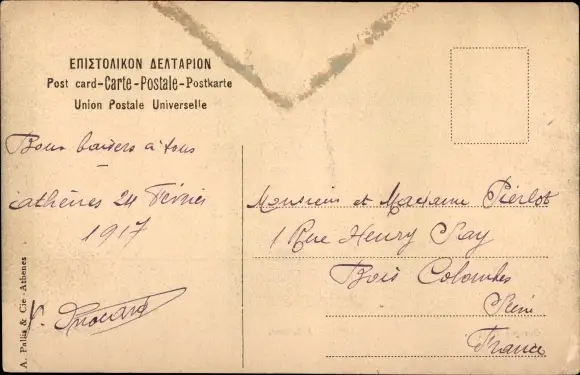 ΕΠΙΣΤΟΛΙΚΟΝ ΔΕΛΤΑΡΙΟΝ
Post card-Carte-Postale-Postkarte
Union Postale Universelle
Bons baisers à tous
Athènes 24 Février
1917
A. Pallis & Cie - Athenes
Monsieur et Madame Pierlot
1 Rue Henry Say
Bois Colombes
Seine
France